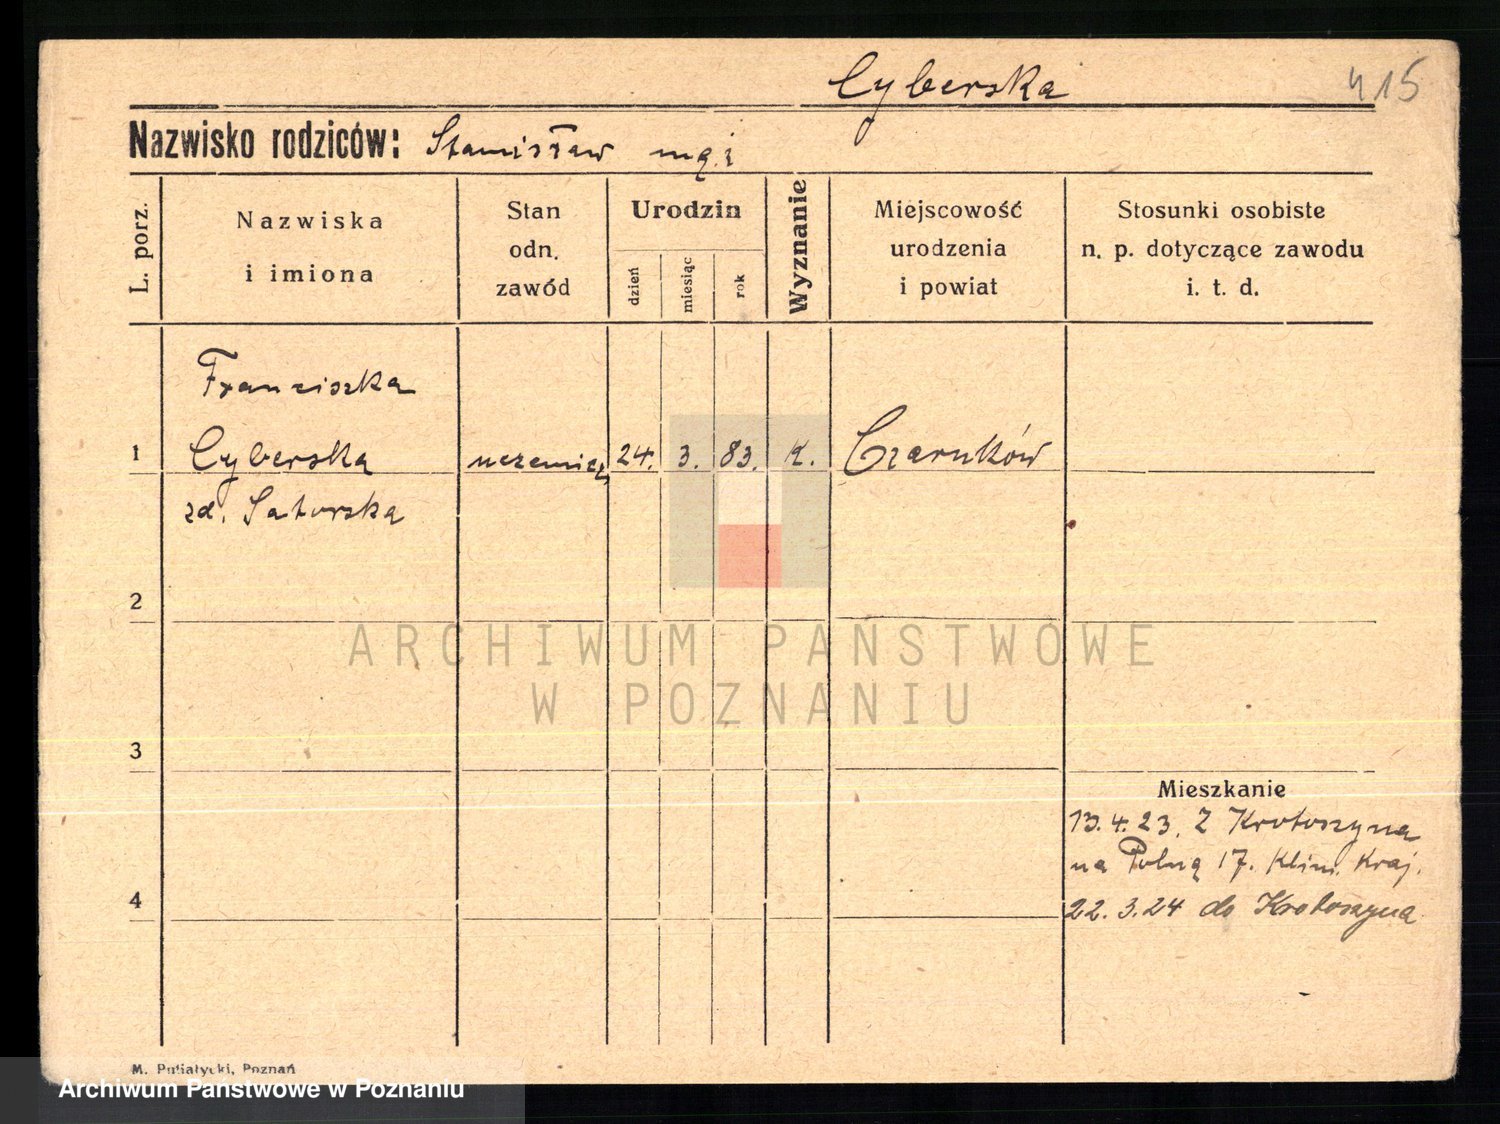 Cyberska
415
Nazwisko rodziców: Stanisław mąż
L. porz.
Nazwiska
i imiona
Stan
odn.
zawód
Urodzin
dzień
miesiąc
rok
Wyznanie
Miejscowość
urodzenia
i powiat
Stosunki osobiste
n. p. dotyczące zawodu
i. t. d.
Franziszka
1 Cyberska 24. 3. 83. k. Czarnków
zd. Satorska
2
ARCHIWUM PAŃSTWOWE
W POZNANIU
3
Mieszkanie
13.4.23. Z Krotoszyna
na Polną 17. Klin. Kraj.
4
22.3.24 do Krotoszyna
M. Putiatycki, Poznań
Archiwum Państwowe w Poznaniu